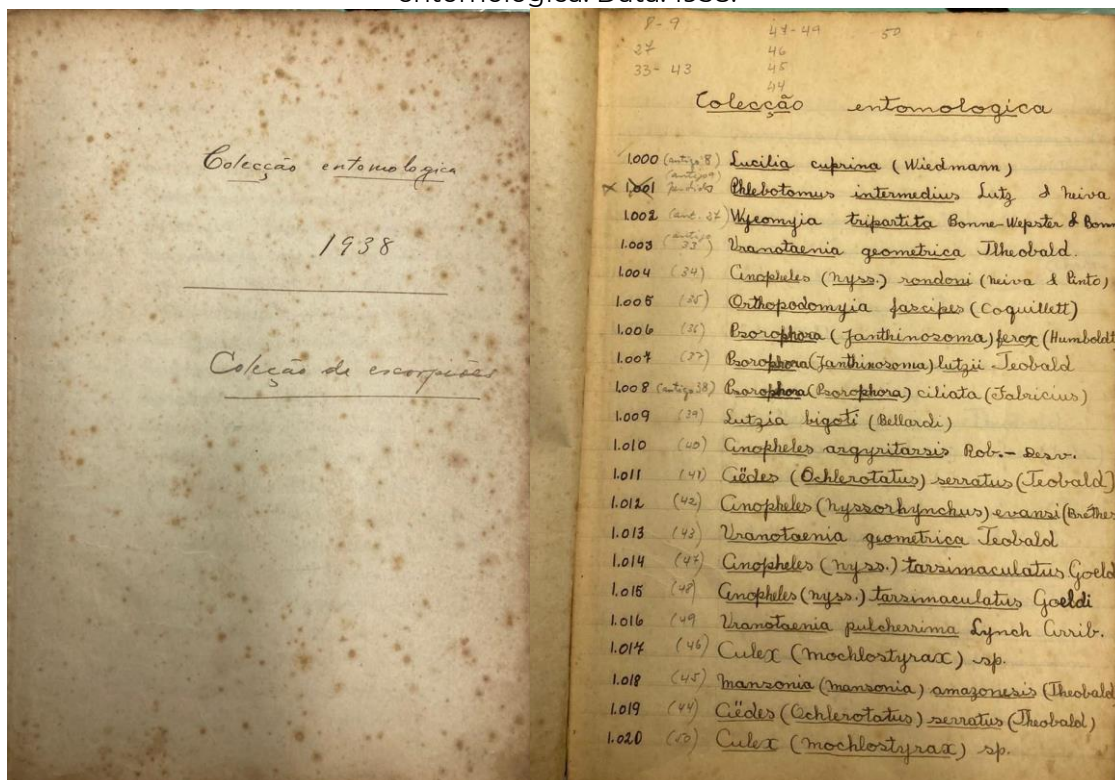 entomológica. Data: 1938.
Colecção entomologica
1938
Coleção de escorpiões
8-9 47-49 50
27 46
33-43 45
44
Colecção entomologica
1.000 (antigo 8) Lucilia cuprina (Wiedmann)
x 1.001 (antigo 9) perdido Phlebotomus intermedius Lutz & Neiva
1.002 (ant. 27) Wyeomyia tripartita Bonne-Wepster & Bonn
1.003 (antigo 33) Uranotaenia geometrica Theobald.
1.004 (34) Anopheles (Nyss.) rondoni (Neiva & Pinto)
1.005 (35) Orthopodomyia fascipes (Coquillett)
1.006 (36) Psorophora (Janthinosoma) ferox (Humboldt
1.007 (37) Psorophora (Janthinosoma) lutzii Teobald
1.008 (antigo 38) Psorophora (Psorophora) ciliata (Fabricius)
1.009 (39) Lutzia bigoti (Bellardi)
1.010 (40) Anopheles argyritarsis Rob.-Desv.
1.011 (41) Aëdes (Ochlerotatus) serratus (Teobald)
1.012 (42) Anopheles (Nyssorhynchus) evansi (Brethes
1.013 (43) Uranotaenia geometrica Teobald
1.014 (47) Anopheles (Nyss.) tarsimaculatus Goeld
1.015 (48) Anopheles (Nyss.) tarsimaculatus Goeldi
1.016 (49 Uranotaenia pulcherrima Lynch Arrib.
1.017 (46) Culex (Mochlostyrax) sp.
1.018 (45) Mansonia (Mansonia) amazonesis (Theobald
1.019 (44) Aëdes (Ochlerotatus) serratus (Theobald)
1.020 (50) Culex (Mochlostyrax) sp.